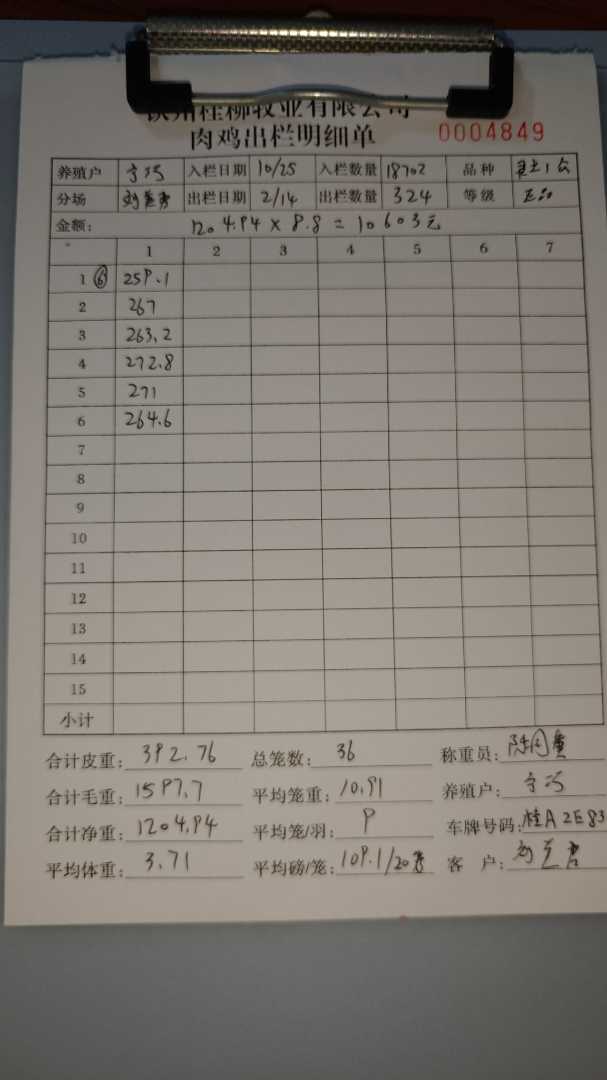 桂柳牧业有限公司
肉鸡出栏明细单 0004849
养殖户 入栏日期 10/25 入栏数量 18702 品种
分场 出栏日期 2/14 出栏数量 324 等级 正品
金额: 1204.94 × 8.8 = 10603元
1 2 3 4 5 6 7
1 ⑥ 259.1
2 267
3 263.2
4 272.8
5 271
6 264.6
7
8
9
10
11
12
13
14
15
小计
合计皮重: 392.76 总笼数: 36 称重员:
合计毛重: 1597.7 平均笼重: 10.91 养殖户:
合计净重: 1204.94 平均笼/羽: 9 车牌号码: 桂A2E83
平均体重: 3.71 平均磅/笼: 109.1/20 客户: